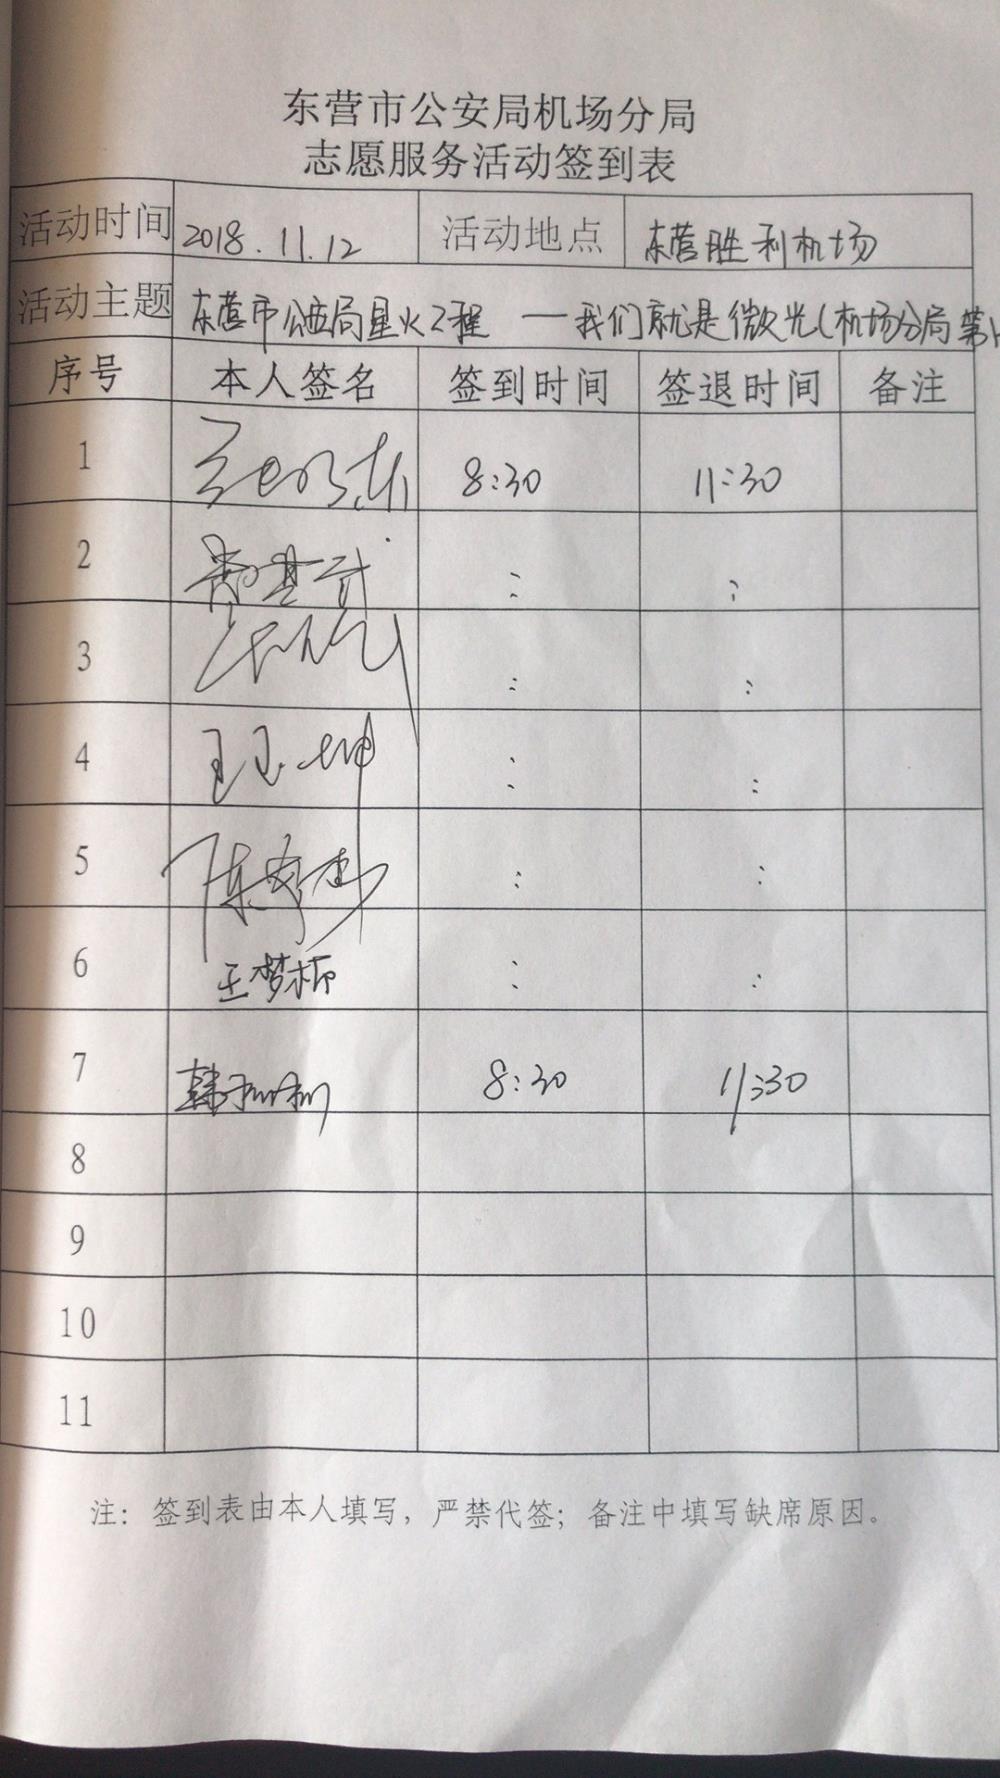 东营市公安局机场分局
志愿服务活动签到表
活动时间 2018.11.12 活动地点 东营胜利机场
活动主题 东营市公安局星火工程 — 我们就是微光(机场分局第
序号 本人签名 签到时间 签退时间 备注
1 8:30 11:30
2 : :
3 : :
4 : :
5 : :
6 王梦柳 : :
7 8:30 11:30
8
9
10
11
注：签到表由本人填写，严禁代签；备注中填写缺席原因。